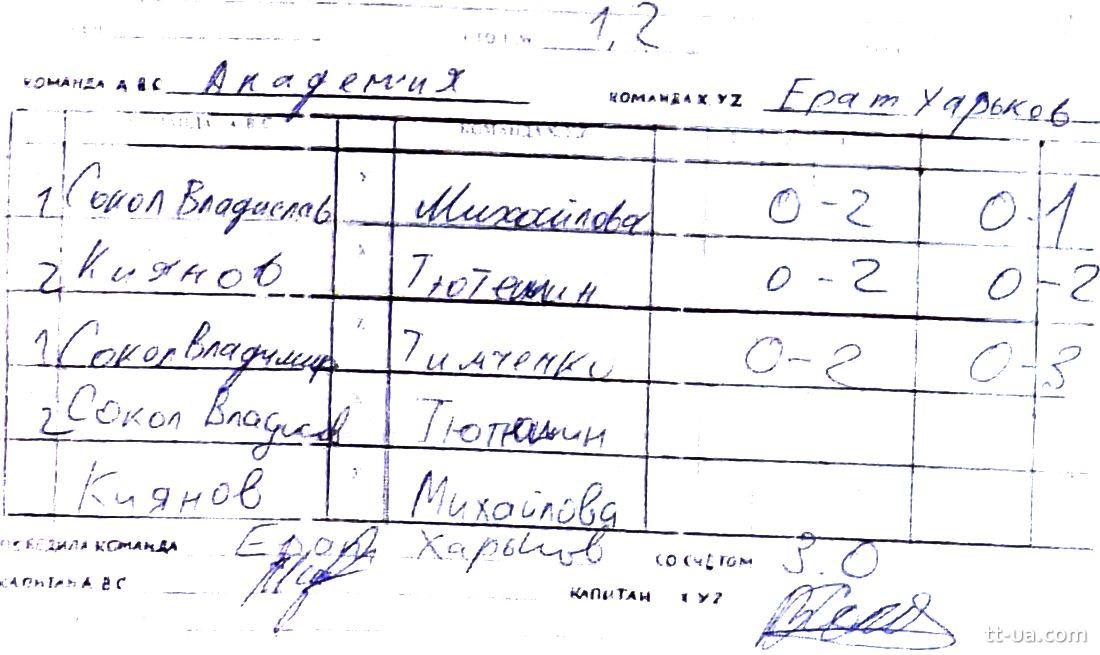 1,2
КОМАНДА А В С Академия КОМАНДА X YZ Ерат Харьков
1 Сокол Владислав Михайлова 0-2 0-1
2 Киянов Тютюнин 0-2 0-2
1 Сокол Владимир Тимченко 0-2 0-3
2 Сокол Владислав Тютюнин
Киянов Михайлова
ПОБЕДИЛА КОМАНДА Ерат Харьков СО СЧЁТОМ 3.0
КАПИТАН А В С КАПИТАН X YZ
tt-ua.com